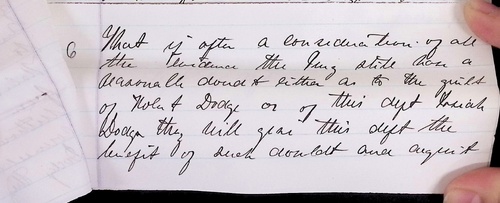 6 That if after a consideration of all
the evidence the Jury still have a
reasonable doubt either as to the guilt
of Robt Dodge or of this deft Josiah
Dodge they will give this deft the
benefit of such doubt and acquit